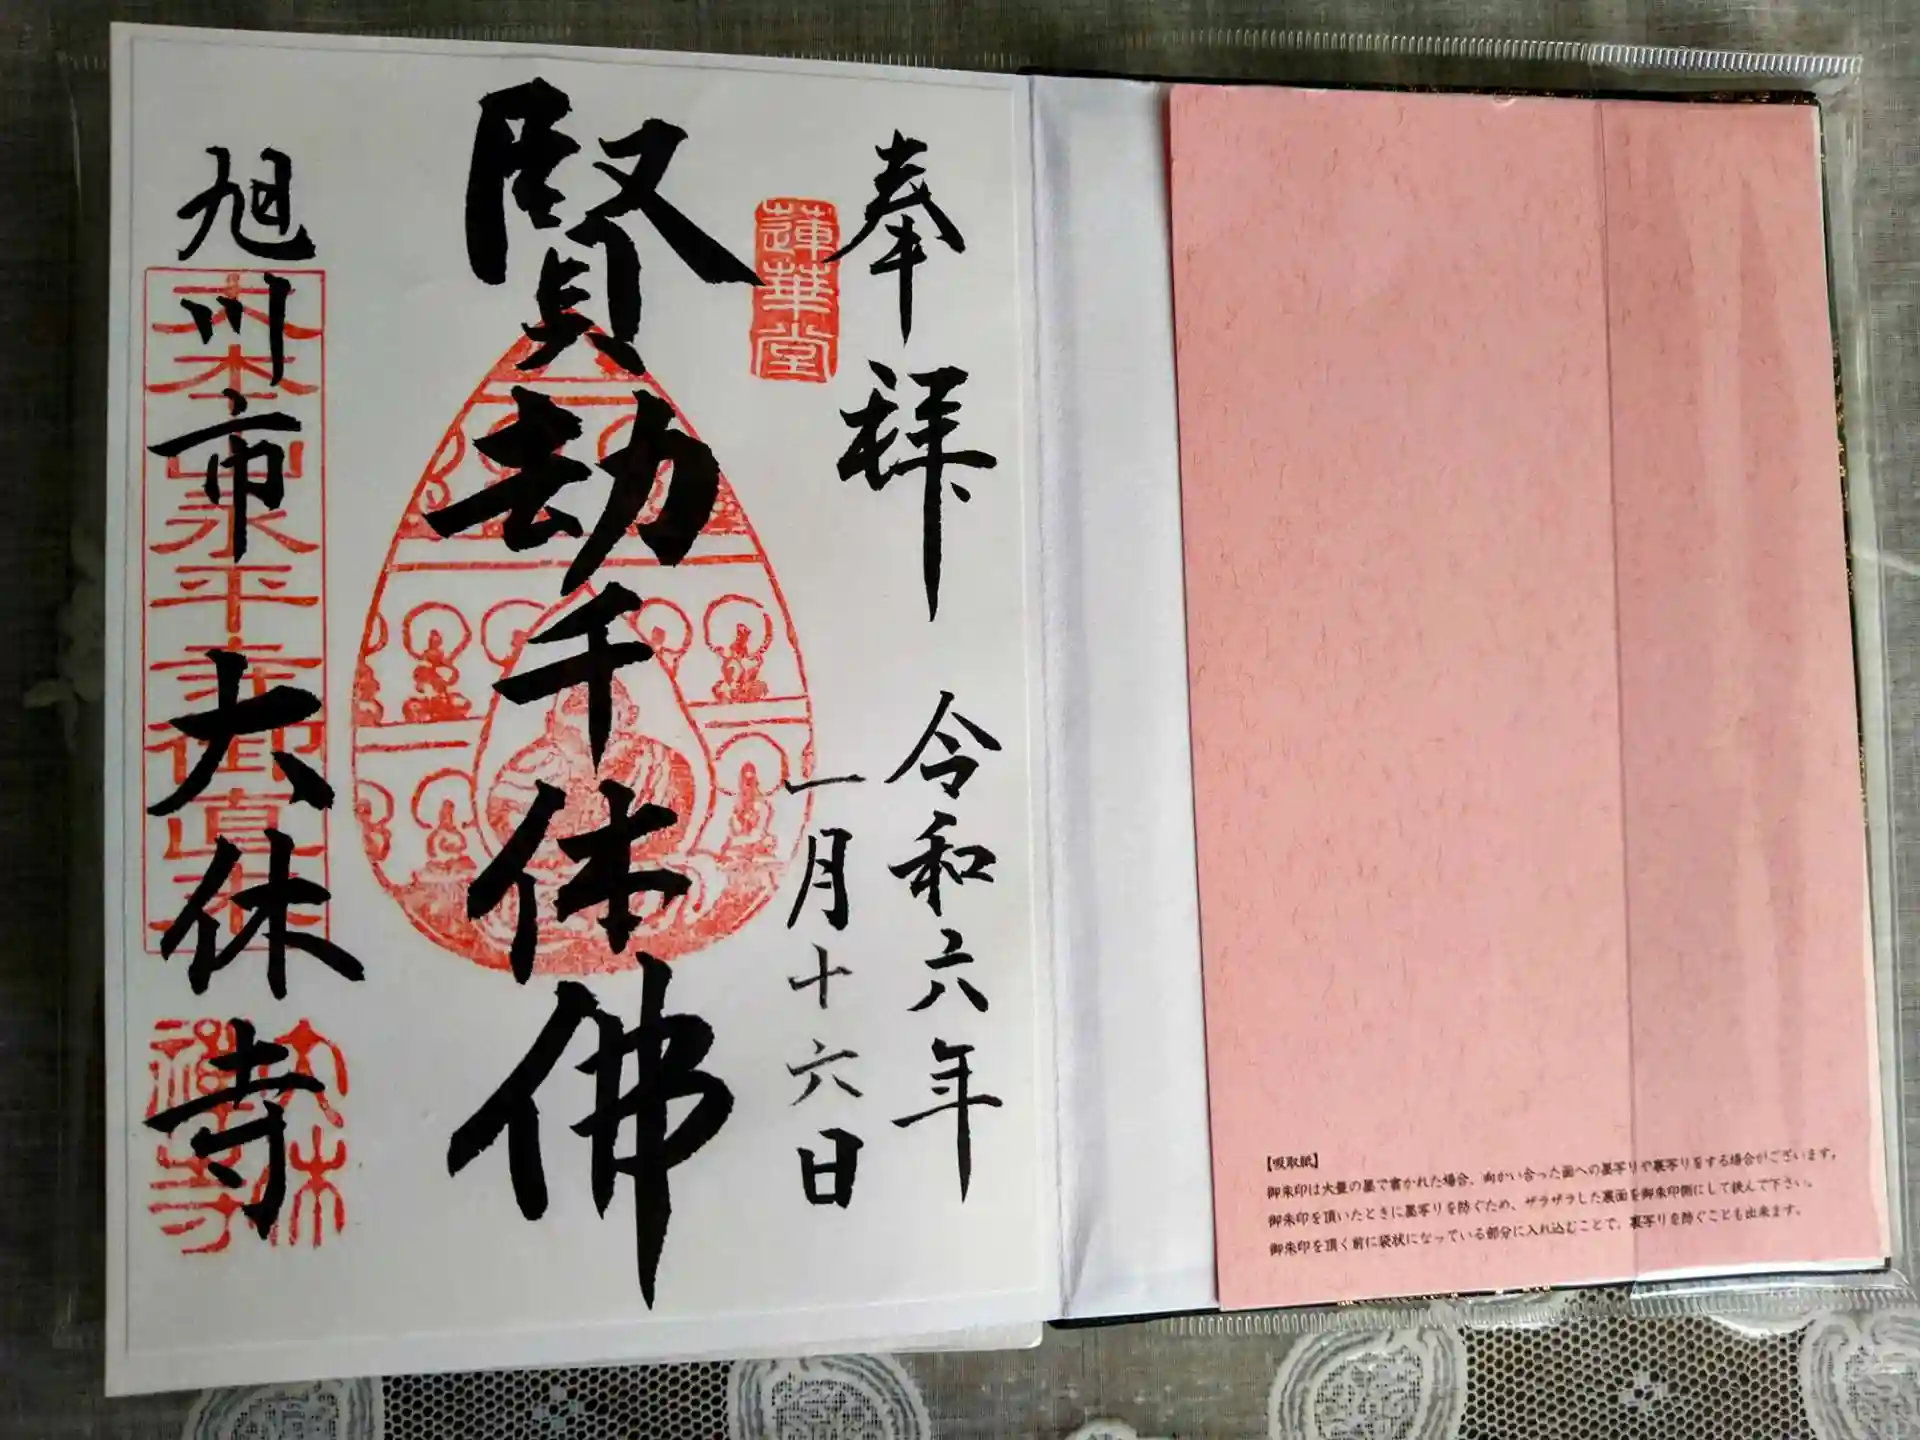 奉拝
令和六年
一月十六日
蓮華堂
賢劫千体佛
旭川市
大休寺
大本山永平寺御直末
大休
禅寺
【吸取紙】
御朱印は大量の墨で書かれた場合、向かい合った面への墨写りや裏写りをする場合がございます。
御朱印を頂いたときに墨写りを防ぐため、ザラザラした裏面を御朱印側にして挟んで下さい。
御朱印を頂く前に袋状になっている部分に入れ込むことで、裏写りを防ぐことも出来ます。